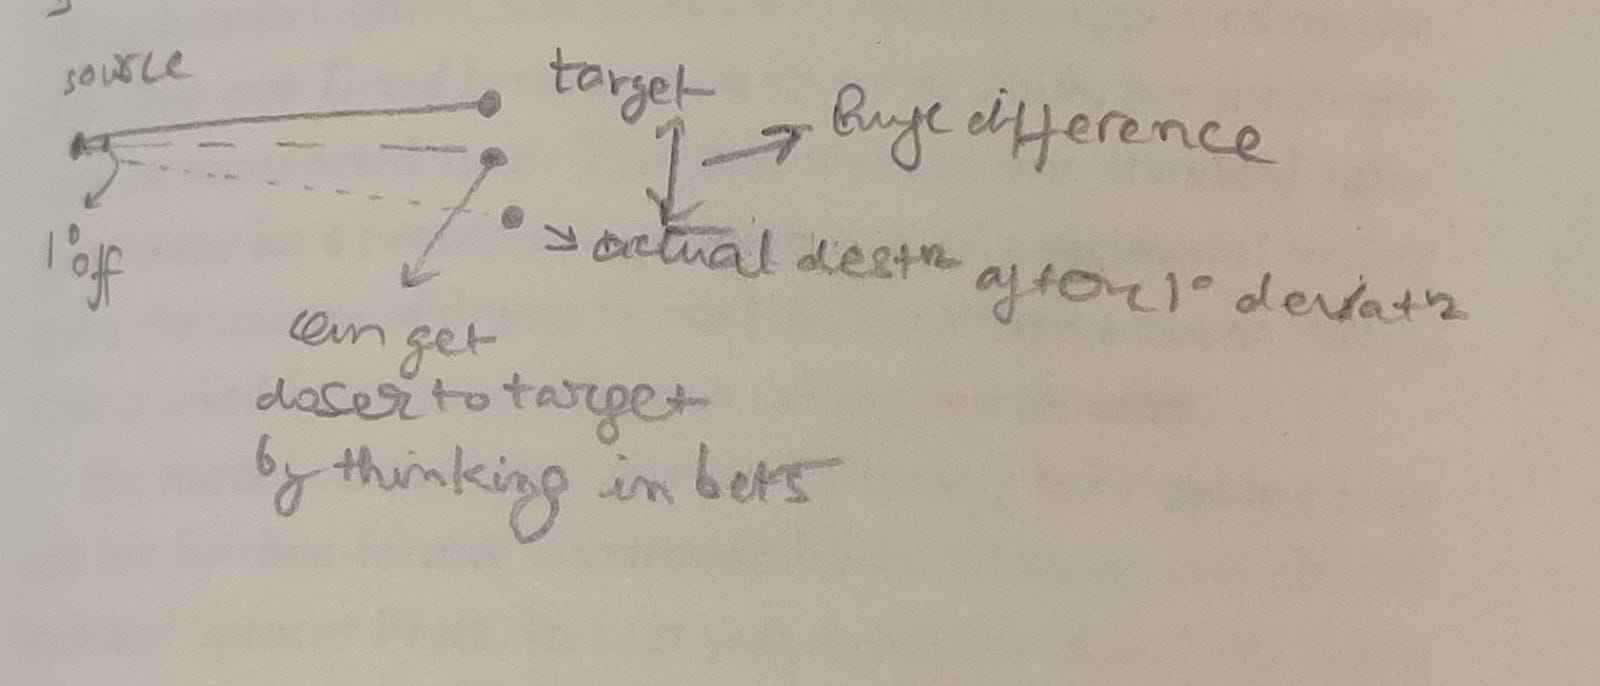 source
target
huge difference
1° off
actual destn after 1° deviatn
can get
closer to target
by thinking in bets